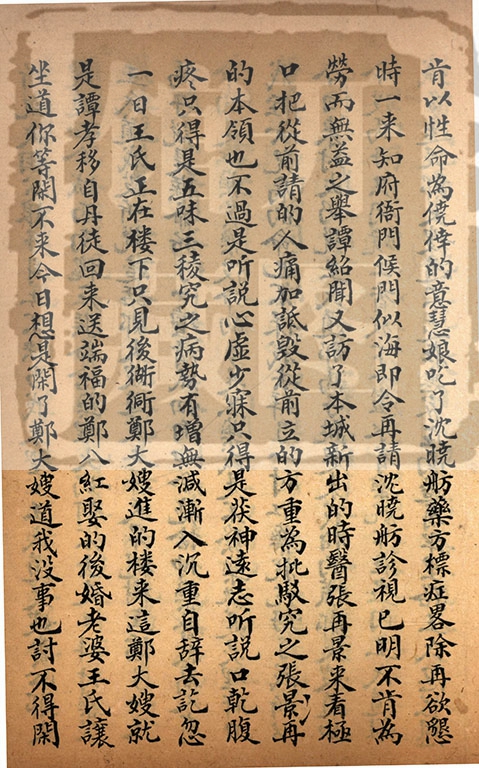 肯以性命為僥倖的意慧娘吃了沈曉舫藥方標症畧除再欲懇
時一来知府衙門候門似海即令再請沈曉舫診視已明不肯為
勞而無益之舉譚紹聞又訪了本城新出的時醫張再景来看極
口把從前請的人痛加詆毀從前立的方重為批駁究之張景再
的本領也不過是听説心虚少寐只得是茯神遠志听説口乾腹
疼只得是五味三稜究之病勢有增無减漸入沉重自辞去訖忽
一日王氏正在楼下只見後衚衕鄭大嫂進的楼来這鄭大嫂就
是譚孝移自丹徒回来送端福的鄭八紅娶的後婚老婆王氏讓
坐道你等閑不来今日想是閑了鄭大嫂道我没事也討不得閑